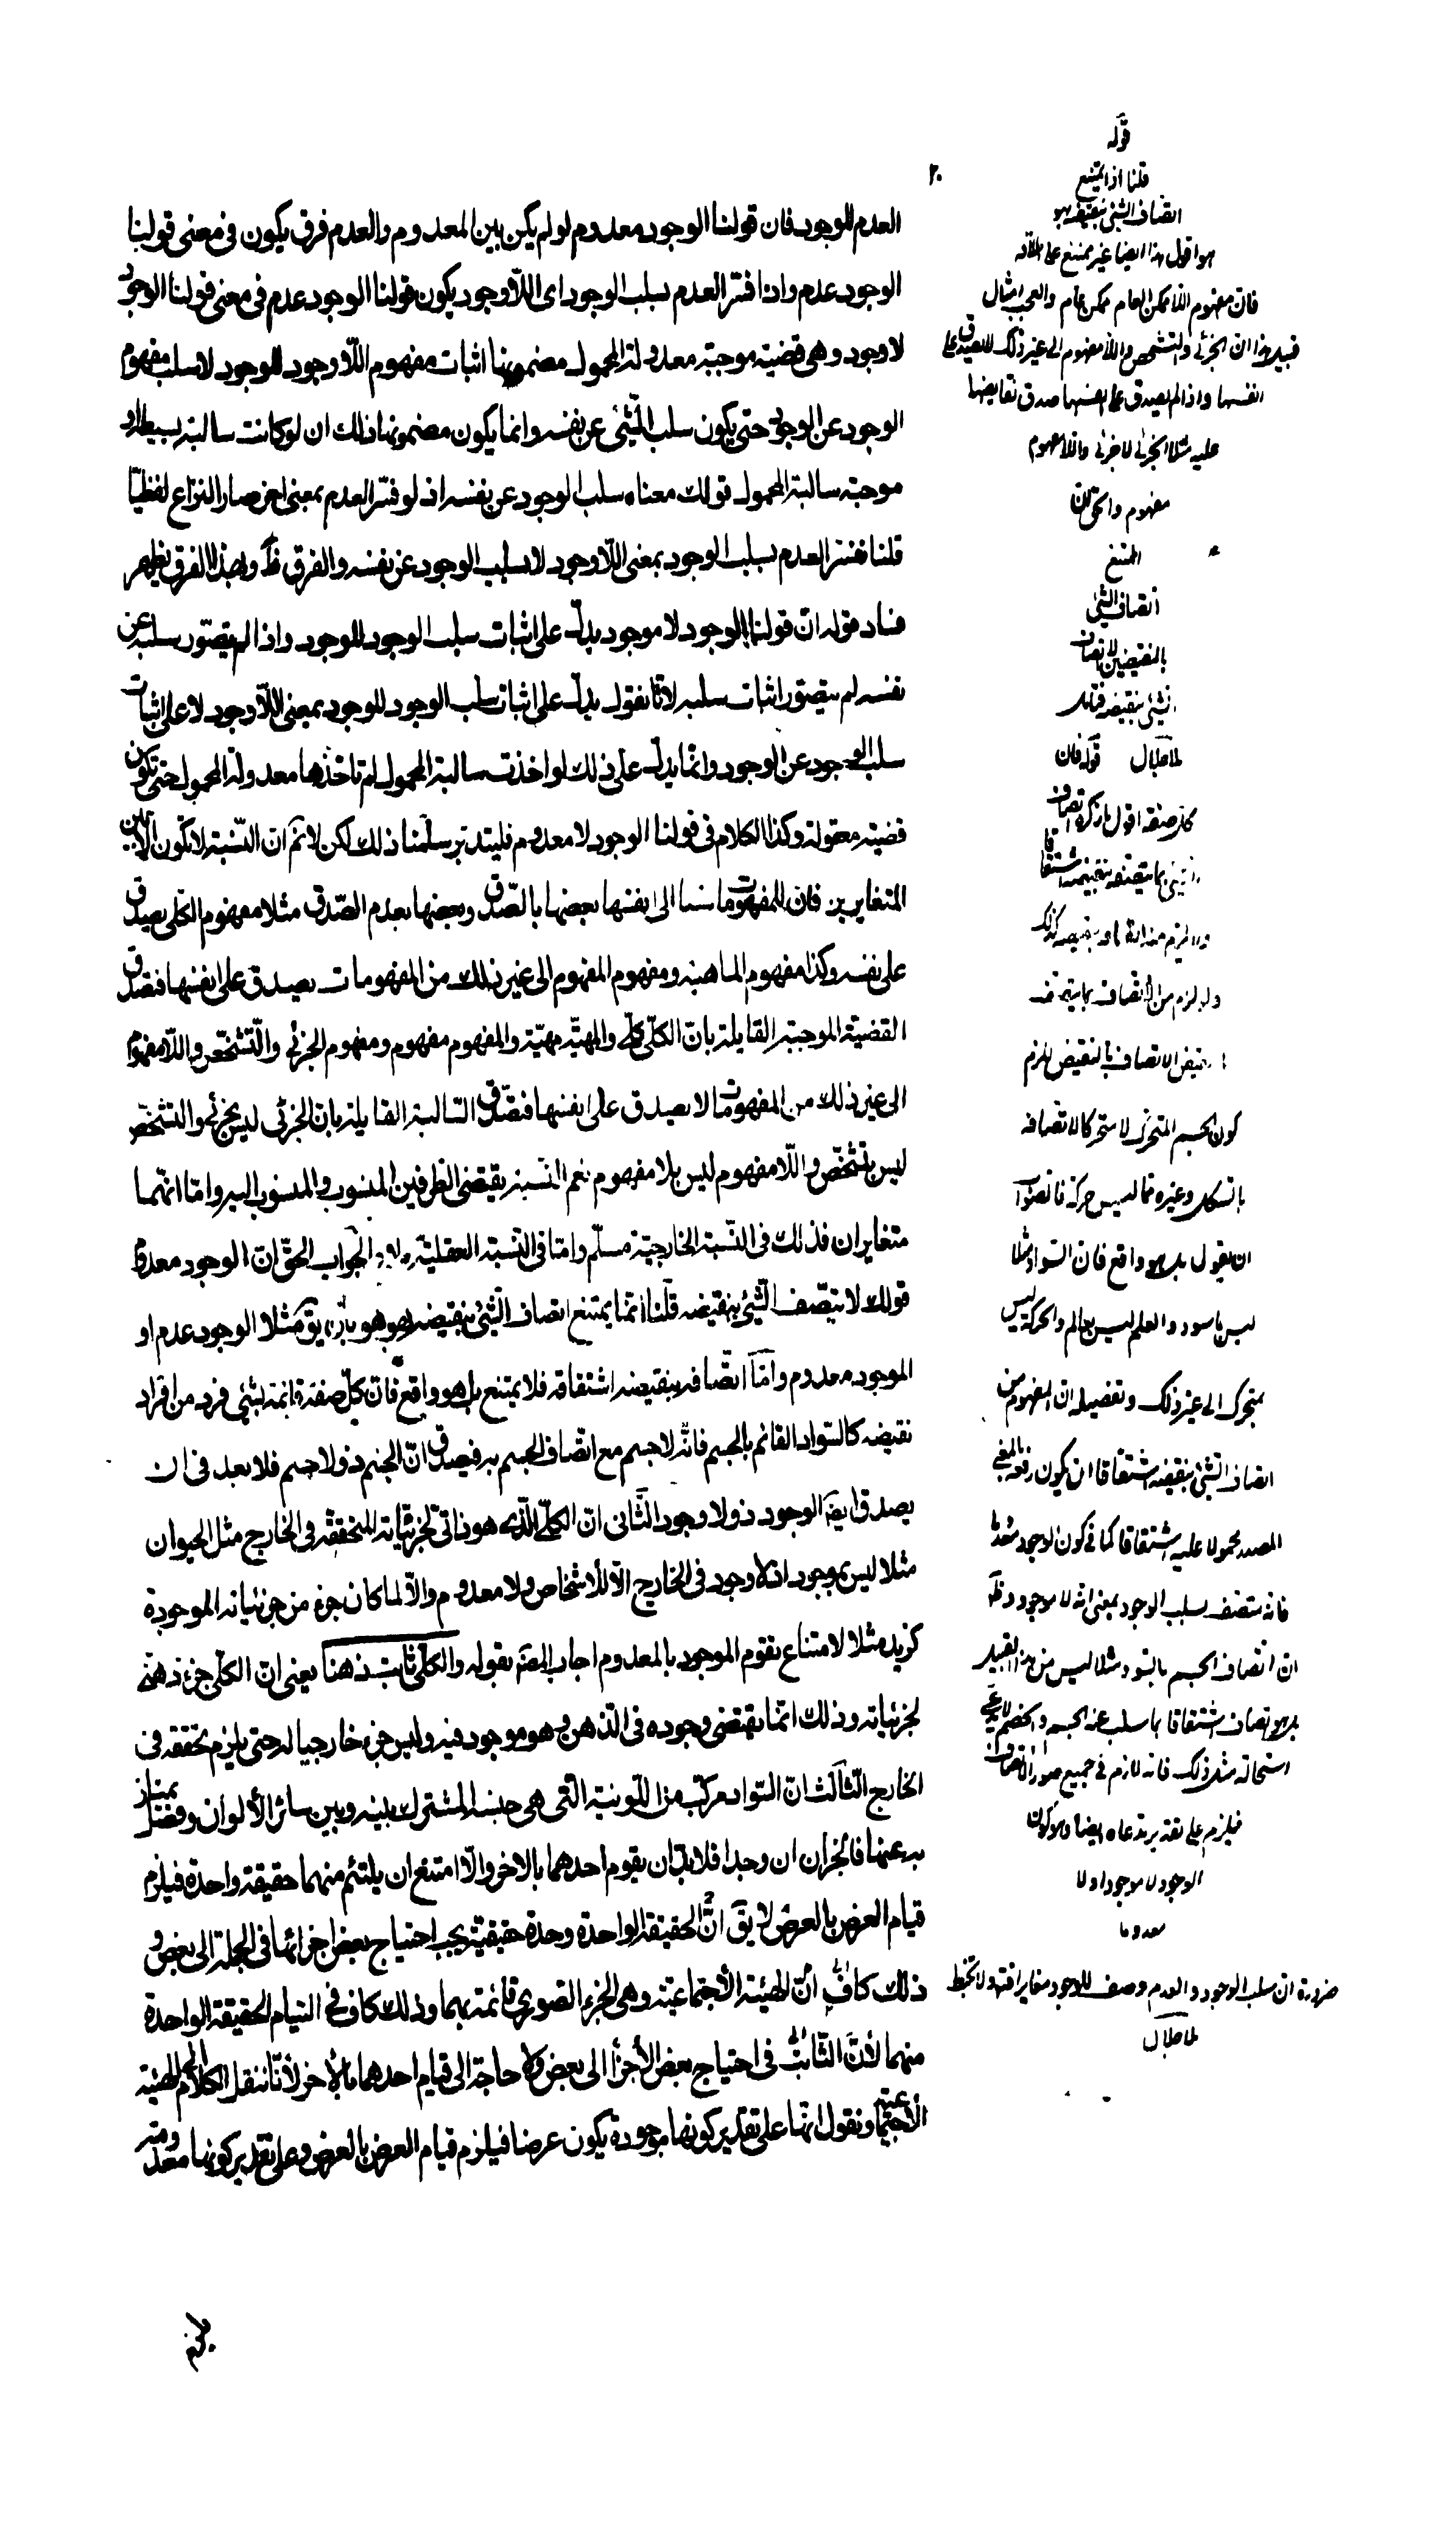 العدم للوجود فان قولنا الوجود معدوم لو لم يكن بين المعدوم والعدم فرق يكون فى معنى قولنا
الوجود عدم واذا فسّر العدم بسلب الوجود اى اللّاوجود يكون قولنا الوجود عدم فى معنى قولنا الوجود
لا وجود وهى قضيته موجبته معدولة المحمول مضمونها اثبات مفهوم اللّاوجود للوجود لا سلب مفهوم
الوجود عن الوجود حتى يكون سلب الشيئ عن نفسه وانما يكون مضمونها ذلك ان لو كانت سالبته بسيطة او
موجبته سالبة المحمول قولك معناه سلب الوجود عن نفسه اذ لو فسّر العدم بمعنى اخر صار النزاع لفظيّا
قلنا نفسّر العدم بسلب الوجود بمعنى اللّاوجود لا بسلب الوجود عن نفسه والفرق ظ وبهذا الفرق يظهر
فساد قوله انّ قولنا الوجود لا موجود يدلّ على اثبات سلب الوجود للوجود واذا لم يتصّور سلبه عن
نفسه لم يتصّور اثبات سلبه لانّا نقول يدلّ على اثبات سلب الوجود للوجود بمعنى اللّاوجود لا على اثبات
سلب الوجود عن الوجود وانّما يدلّ على ذلك لو اخذت سالبة المحمول لم تاخذها معدولة المحمول حتى تكون
قضيته معقولة وكذا الكلام فى قولنا الوجود لا معدوم فليتدبّر سلّمنا ذلك لكن لا نم ان النّسبة لا تكون الا بين
المتغايرين فان للمفهومات نسبا الى انفسها بعضها بالصّدق وبعضها بعدم الصّدق مثلا مفهوم الكلى يصدق
على نفسه وكذا مفهوم الماهيته ومفهوم المفهوم الى غير ذلك من المفهومات يصدق على انفسها فتصدق
القضيّة الموجبته القايلة بانّ الكلّى كلّى والمهيّة مهيّة والمفهوم مفهوم ومفهوم الجزئى والتّشخّص واللّامفهوم
الى غير ذلك من المفهومات لا يصدق على انفسها فتصّدق السّالبة القايلة بان الجزئى ليس بجزئى والتشخّص
ليس بتشخّص واللّامفهوم ليس بلا مفهوم نعم النّسبة يقتضى الطرفين المنسوب والمنسوب اليه وامّا انهما
متغايران فذلك فى النّسبة الخارجيّة مسلّم وامّا فى النّسبة العقليّة الجواب الحقّ ان الوجود معدوم
قولك لا يتّصف الشّيئ بنقيضه قلنا انّما يمتنع اتصاف الشّيئ بنقيضه بهو هو بان يقَ مثلا الوجود عدم او
الموجود معدوم وامّا اتّصافه بنقيضه اشتقاقه فلا يمتنع بل هو واقع فانّ كلّ صفة قائمة بشيئ فرد من افراد
نقيضه كالسّواد القائم بالجسم فانّه لا جسم مع اتّصاف الجسم به فيصدق انّ الجسم ذو لا جسم فلا بعد فى ان
يصدق ايضَ الوجود ذو لا وجود الثّانى انّ الكلّى الّذى هو ذاتى لجزئيّاته المتحققة فى الخارج مثل الحيوان
مثلا ليس بموجود اذ لا وجود فى الخارج الّا للاشخاص ولا معدوم والّا لما كان جزء من جزئياته الموجودة
كزيد مثلا لامتناع تقوم الموجود بالمعدوم اجاب المصَ بقوله والكلّى ثابت ذهنا يعنى انّ الكلّى جزء ذهنى
لجزئياته وذلك انّما يقتضى وجوده فى الذّهن وهو موجود فيه وليس جزء خارجيا له حتى يلزم تحققه فى
الخارج الثّالث انّ السّواد مركّب من اللّونيّة الّتى هى جنسه المشترك بينه وبين سائر الألوان وفصل يمتاز
به عنها فالجزان ان وجدا فلا بدّ ان يقوم احدهما بالاخر والّا امتنع ان يلتئم منهما حقيقة واحدة فيلزم
قيام العرض بالعرض لا يقَ انّ الحقيقة الواحدة وحدة حقيقيّة يجب احتياج بعض اجزائها فى الجملة الى بعض و
ذلك كاف انّ الهيئة الأجتماعيته وهى الجزء الصّورى قائمة بهما وذلك كاف فى التيام الحقيقة الواحدة
منهما لأنّ الثّابت فى احتياج بعض الأجزا الى بعض ولا حاجة الى قيام احدهما بالأخر لأنّا ننقل الكلام الى الهيئة
الأجتماعيته ونقول انّها على تقدير كونها موجودة يكون عرضا فيلزم قيام العرض بالعرض وعلى تقدير كونها معدومته
قوله
قلنا اذا يمتنع
اتصاف الشئ بنقيضه بهو
هو اقول هذا ايضا غير ممتنع على اطلاقه
فان مفهوم اللاممكن العام ممكن عام والعجب امثال
قبيل هذا ان الجزئى والتشخص واللامفهوم الى غير ذلك لا يصدق على
انفسها واذا لم يصدق على انفسها صدق نقايضها
عليه مثلا الجزئى لا جزئى واللامفهوم
مفهوم والحق ان
الممتنع
اتصاف الشئ
بالنقيضين لا اتصاف
الشئ بنقيضه فتامل
لماطلال قوله فان
كل صفة اقول
ولا يلزم من الاتصاف بما
نقيض الاتصاف بالنقيض يلزم
كون الجسم المتحرك لا متحركا لاتصافه
بالشكل وغيره مما ليس حركة فالصواب
ان يقول بل هو واقع فان السواد مثلا
ليس باسود والعلم ليس بعالم والحركة ليس
بمتحرك الى غير ذلك وتفصيله ان المفهوم من
اتصاف الشئ بنقيضه اشتقاقا ان يكون رفعه بالمعنى
المصدر محمولا عليه اشتقاقا كما فى كون الوجود معدوما
فانه متصف بسلب الوجود بمعنى انه لا موجود وظَ
ان اتصاف الجسم بالسواد مثلا ليس من هذا القبيل
بل هو اتصاف اشتقاقا بما سلب عنه الجسم والخصم لا يدعى
استحالة مثل ذلك فانه لازم فى جميع صور الاتصاف
فيلزم على تقدير مدعاه ايضا
الوجود لا موجودا ولا
معدوما
ضرورة ان سلب الوجود والعدم وصف للوجود مغاير
لماطلال